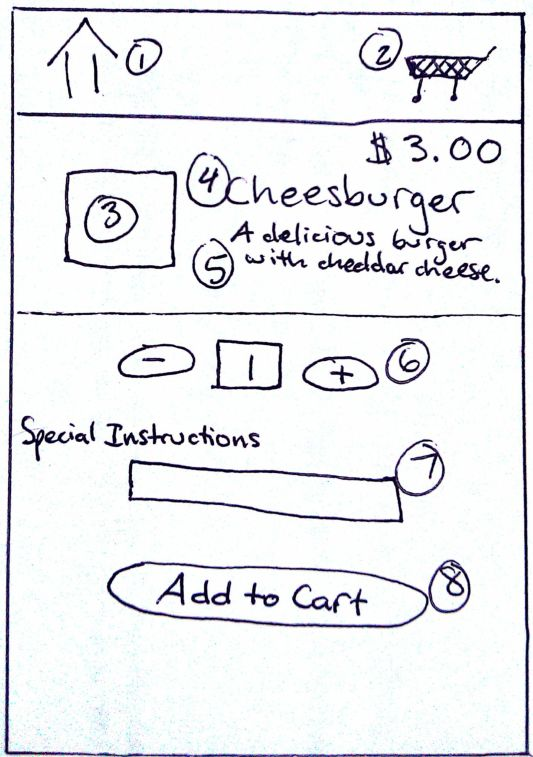 1 2
$ 3.00
3 4 Cheesburger
A delicious burger
5 with cheddar cheese.
- 1 + 6
Special Instructions
7
Add to Cart 8